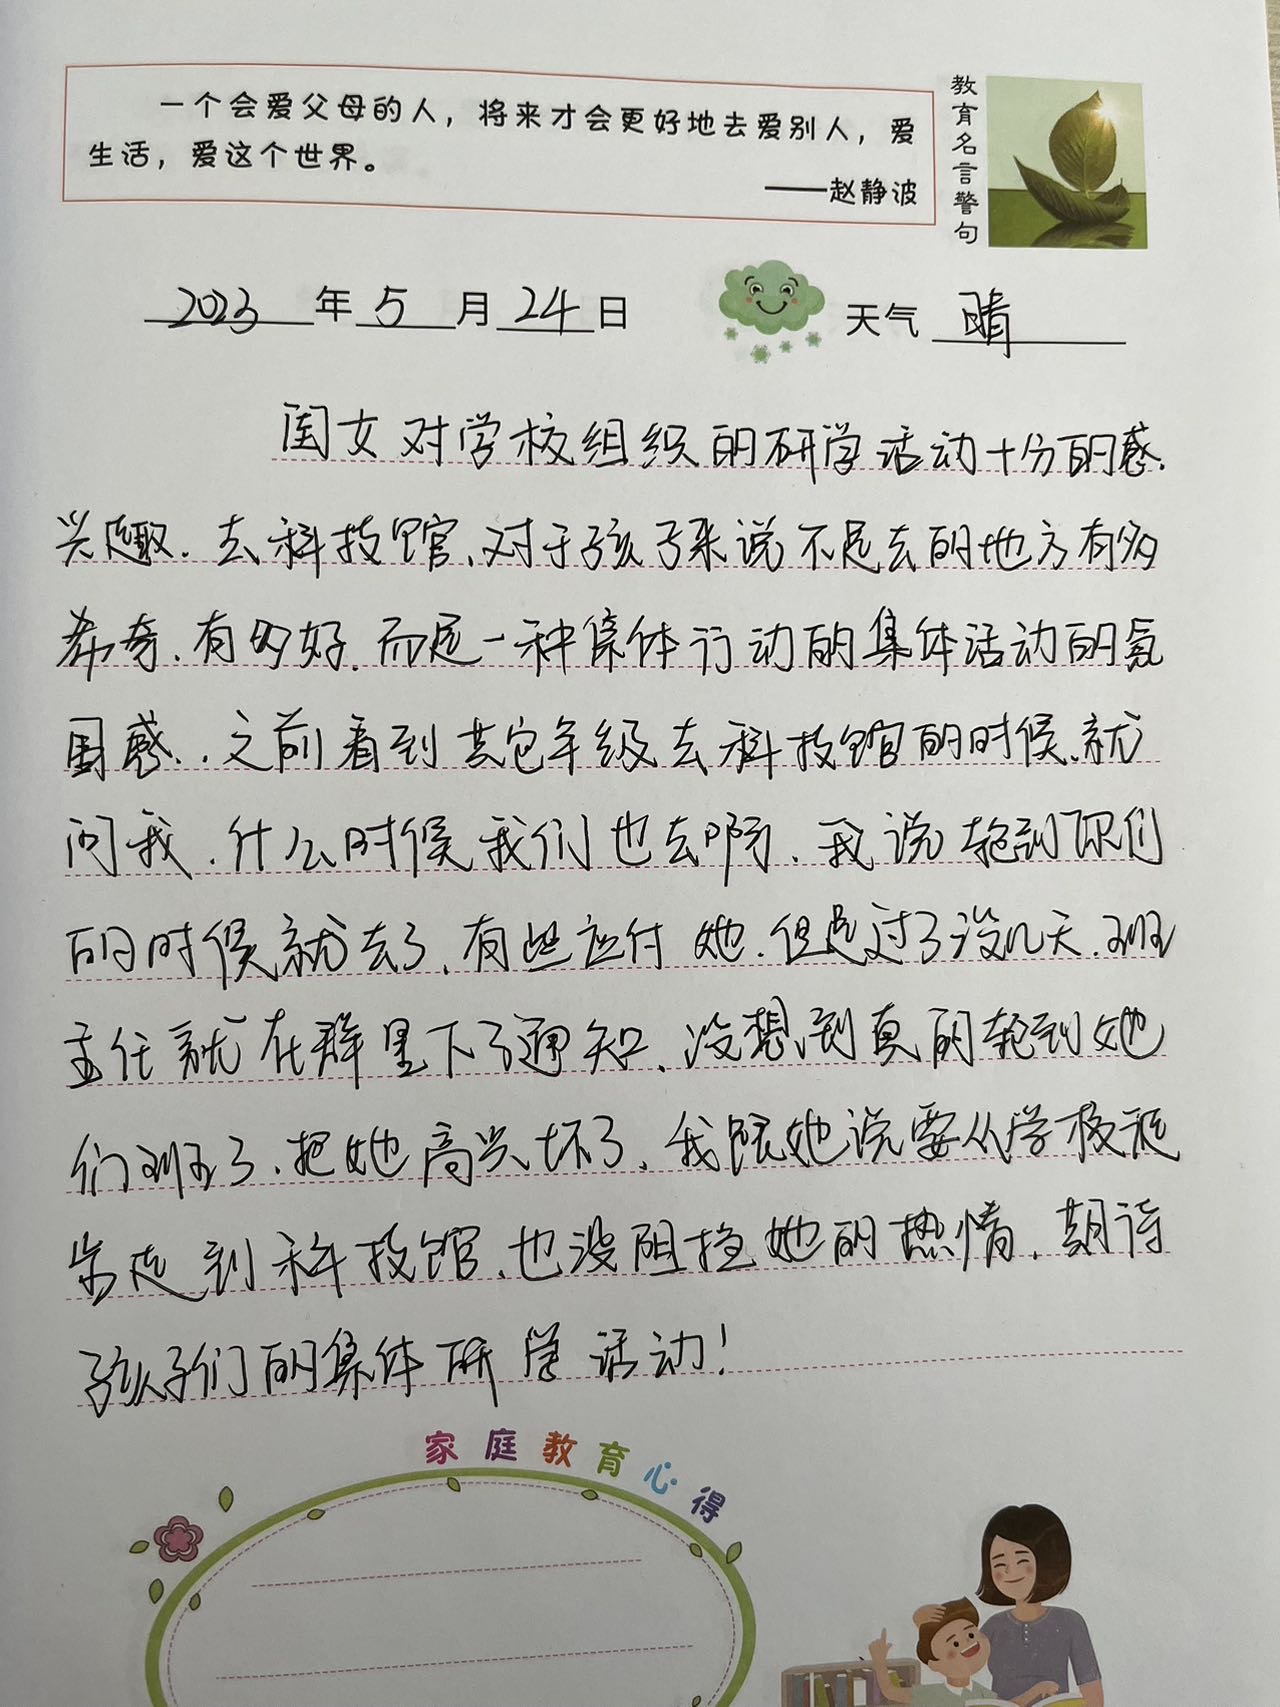 一个会爱父母的人，将来才会更好地去爱别人，爱
生活，爱这个世界。
——赵静波
教育名言警句
2023年5月24日
天气 晴
闺女对学校组织的研学活动十分的感
兴趣.去科技馆、对于孩子来说不是去的地方有多
希奇、有多好.而是一种集体行动的集体活动的氛
围感..之前看到其它年级去科技馆的时候、就
问我.什么时候我们也去啊、我说轮到你们
的时候就去了、有些应付她.但是过了没几天.班
主任就在群里下了通知、没想到真的轮到她
们班了、把她高兴坏了、我跟她说要从学校徒
步走到科技馆、也没阻挡她的热情.期待
孩子们的集体研学活动!
家庭教育心得